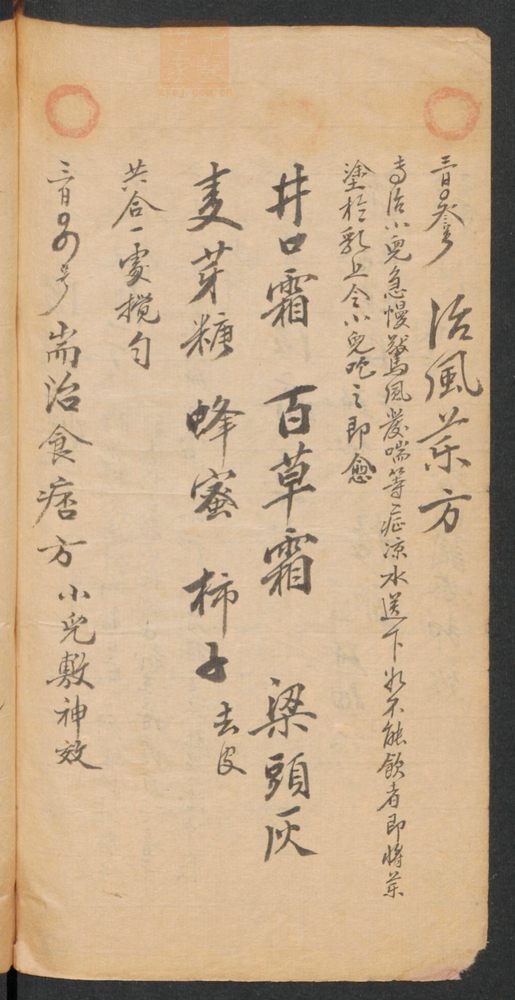 三百〇叁号 治風藥方
專治小兒急慢驚風發喘等症凉水送下如不能飲者即將藥
塗於乳上令小兒吃之即愈
井口霜 百草霜 梁頭灰
麦芽糖 蜂蜜 柿子去皮
共合一處攪匀
三百〇四号 耑治食痞方 小兒敷神效